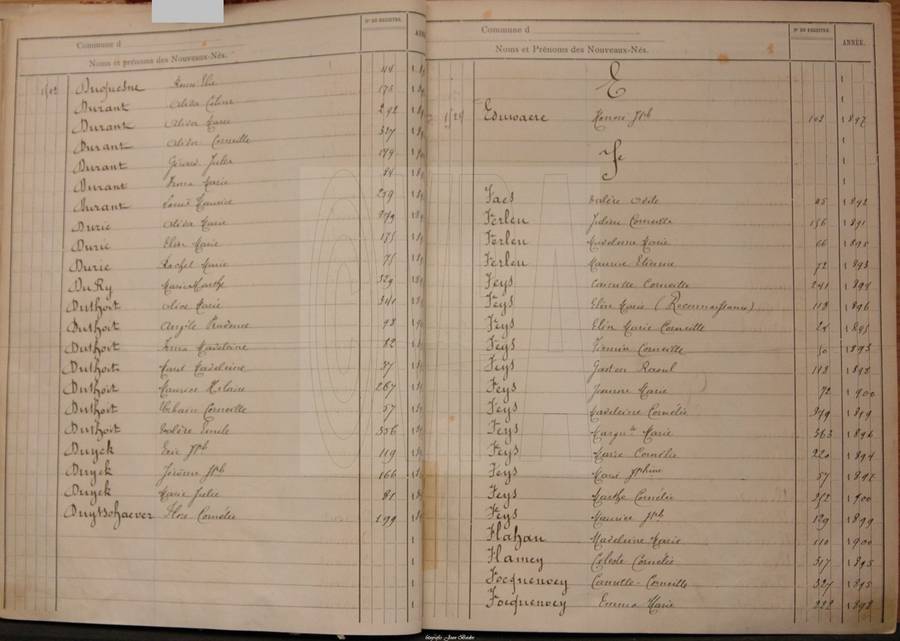 Commune d
Nº DU REGISTRE.
Noms et prénoms des Nouveaux-Nés.
Duquesne 44
Durant Alida Céline 175
Durant Alida Marie 292
Durant Alida Corneille 327
Durant Gérard Jules 179
Durant Irma Marie 84
Durant Louis Maurice 259
Durie Alida Marie 279
Durie Elise Marie 175
Durie Rachel Marie 75
DuRy Marie Marthe 329
Duthoit Alice Marie 341
Duthoit Angèle Prudence
Duthoit Irma Madeleine 82
Duthoit Madeleine 37
Duthoit Maurice Hilaire 267
Duthoit Urbain Corneille 57
Duthoit Valère Emile 336
Duyck Eric Jph 119
Duyck Jérôme Jph 166
Duyck Marie Julie 81
Duytschaever Flore Cornélie 199
Commune d
Nº DU REGISTRE.
ANNÉE.
Noms et Prénoms des Nouveaux-Nés.
E
Eduwaere Honoré Jph 103 1897
F
Faes Valère Odile 1892
Ferleu Julien Corneille 156 1891
Ferleu Madeleine Marie 66 1898
Ferleu Maurice Etienne 72 1893
Feys Camille Corneille 241 1894
Feys Elise Marie (Reconnaissance) 118 1896
Feys Elise Marie Corneille 24 1895
Feys Firmin Corneille 50 1893
Feys Gaston Raoul 118 1892
Feys Jeanne Marie 72 1900
Feys Madeleine Cornélie 279 1899
Feys Margu.te Marie 363 1896
Feys Marie Cornélie 220 1894
Feys Marie Jphine 57 1897
Feys Marthe Cornélie 1900
Feys Maurice Jph 129 1899
Flahau Madeleine Marie 110 1900
Flamey Celeste Cornélie 317 1895
Focquenoey Camille-Corneille 327 1895
Focquenoey Emma Marie 222 1898